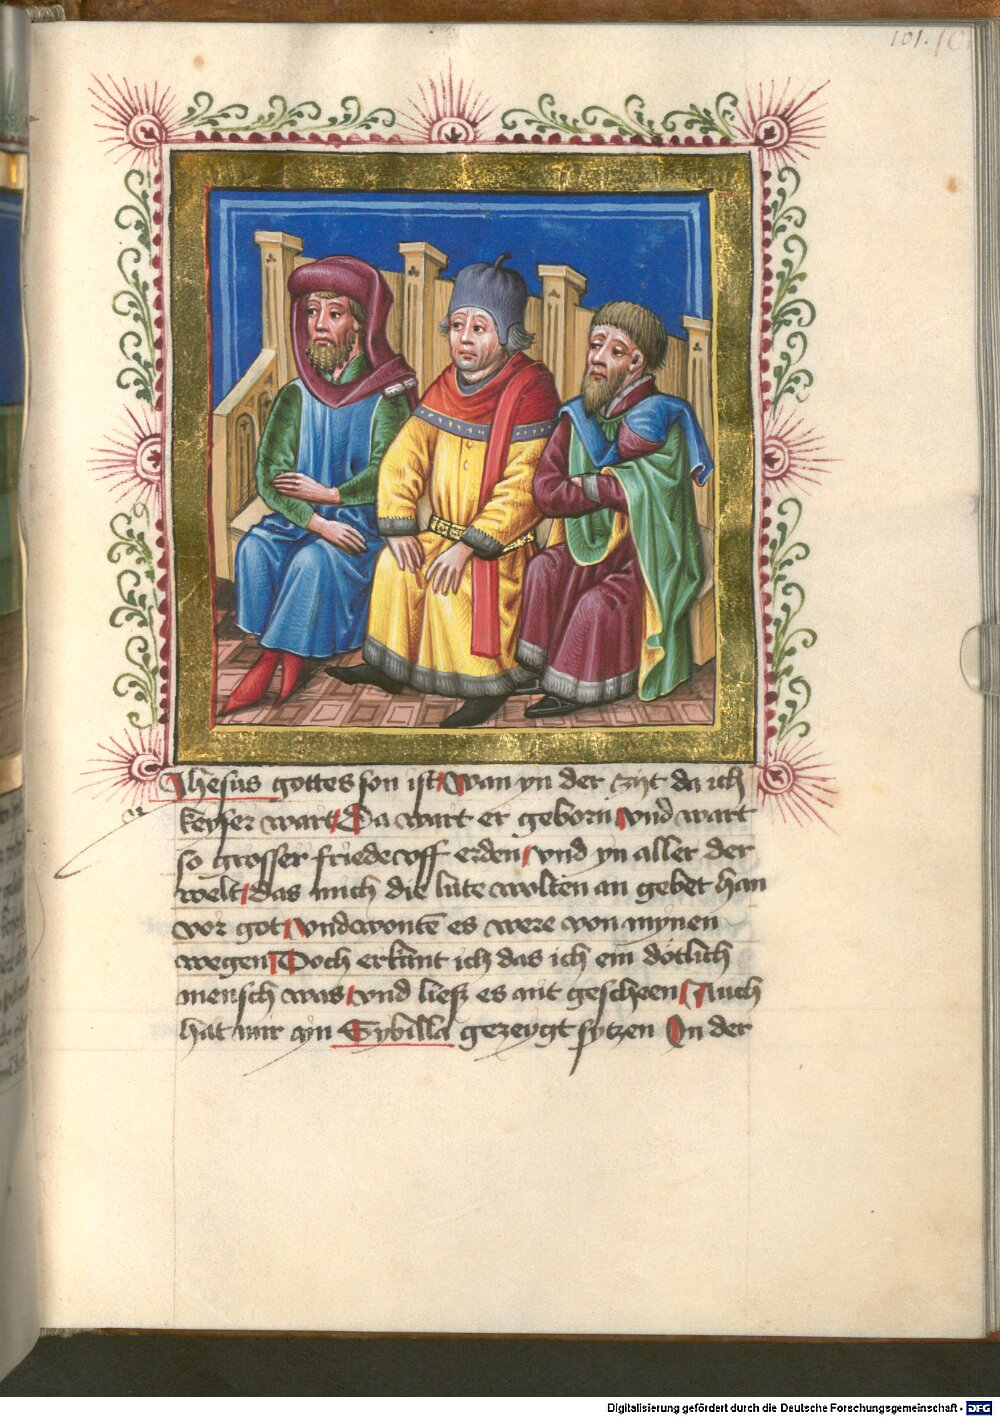 101. 101
Jhesus gottes son ist Wan yn der zyt da ich
keyser wart Da wart er geborn vnd wart
so grosser friede vff erden vnd yn aller der
welt das mich die lute wolten an gebet han
vor got vnd wonte͂ es were von mynen
wegen Doch erkant ich das ich ein dotlich
mensch was vnd liesz es nit gescheen Auch
hat mir ayn Sybilla gezeygt sytzen Jn der
Digitalisierung gefördert durch die Deutsche Forschungsgemeinschaft - DFG